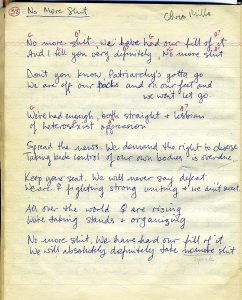 No More Shit
Chris Mills
G D7
No more shit. We have had our fill of it
And I tell you very definitely, No more shit
Don't you know Patriarchy's gotta go
We are off our backs and on our feet and
we won't let go
G D7
We've had enough, both straight & lesbian
of heterosexist oppression
Spread the news. We demand the right to choose
Taking back control of our own bodies is overdue
Keep your seat. We will never say defeat
We are fighting strong uniting & we ain't weak
All over the world & are rising
We're taking stands & organizing
No more shit. We have had our fill of it
We will absolutely definitely take no more shit